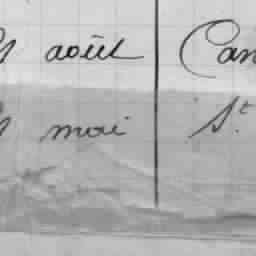 août Can
mai St